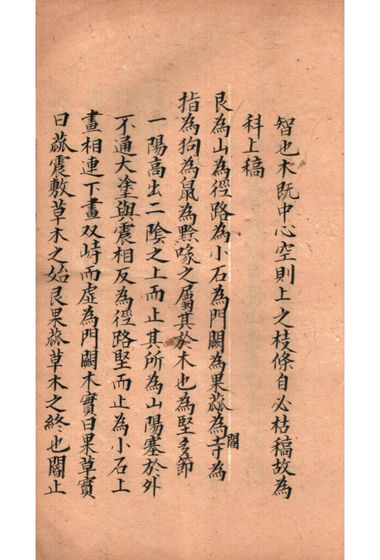 智也木既中心空則上之枝條自必枯稿故為
科上稿
艮為山為徑路為小石為門闕為果蓏為閽寺為
指為狗為鼠為黔喙之屬其於木也為堅多節
一陽高出二陰之上而止其所為山陽塞於外
不通大塗與震相反為徑路堅而止為小石上
畫相連下畫双峙而虛為門闕木實曰果草實
曰蓏震敷草木之始艮果蓏草木之終也閽止